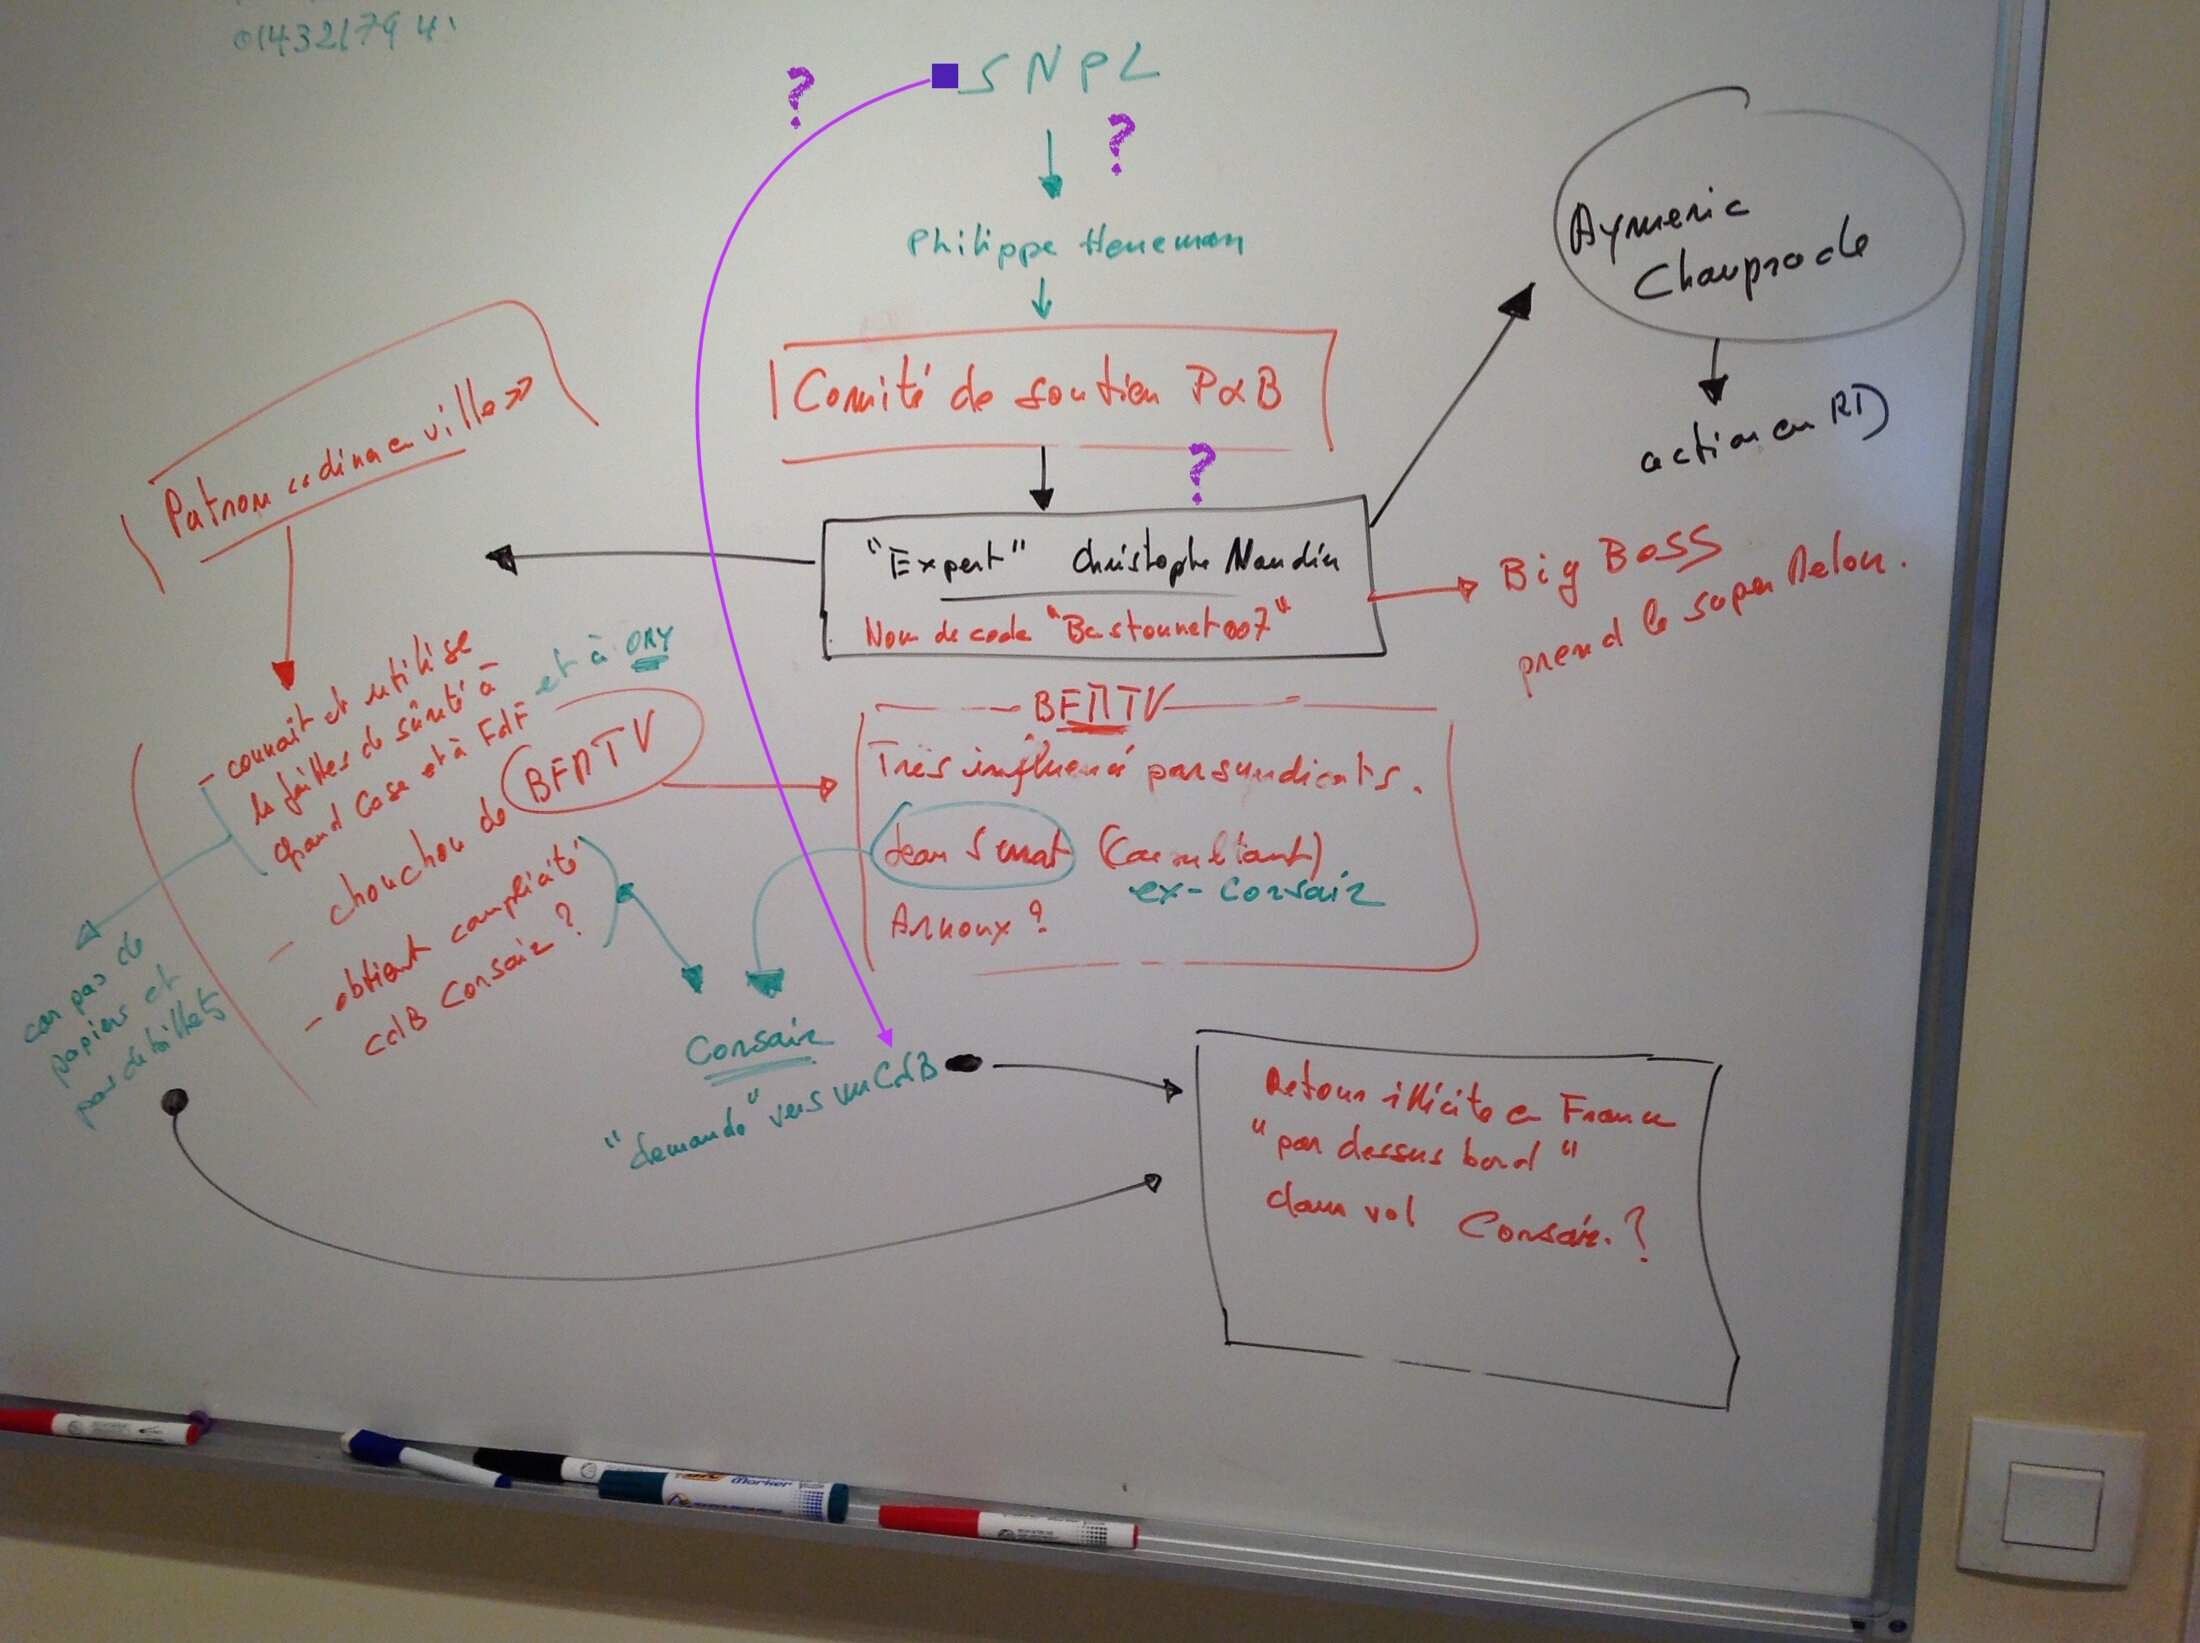 SNPL
?
?
Philippe Heneman
Comité de soutien P&B
?
"Expert" Christophe Naudin
Nom de code "Bastounet007"
Aymeric
Chauprade
action en RD
Big Boss
prend le super Melon.
Patron "cedina en ville"
- connait et utilise
les failles de sûreté à
Grand Case et à FdF et à ORY
- chouchou de BFMTV
- obtient complicité
CdB Corsair ?
car pas de
papiers et
pas de billets
BFMTV
Très influencé par syndicats.
Jean Serrat (Consultant)
ex-Corsair
Arnoux ?
Corsair
"demande" vers un CdB
Retour illicite en France
"par dessus bord"
dans vol Corsair ?
Marker